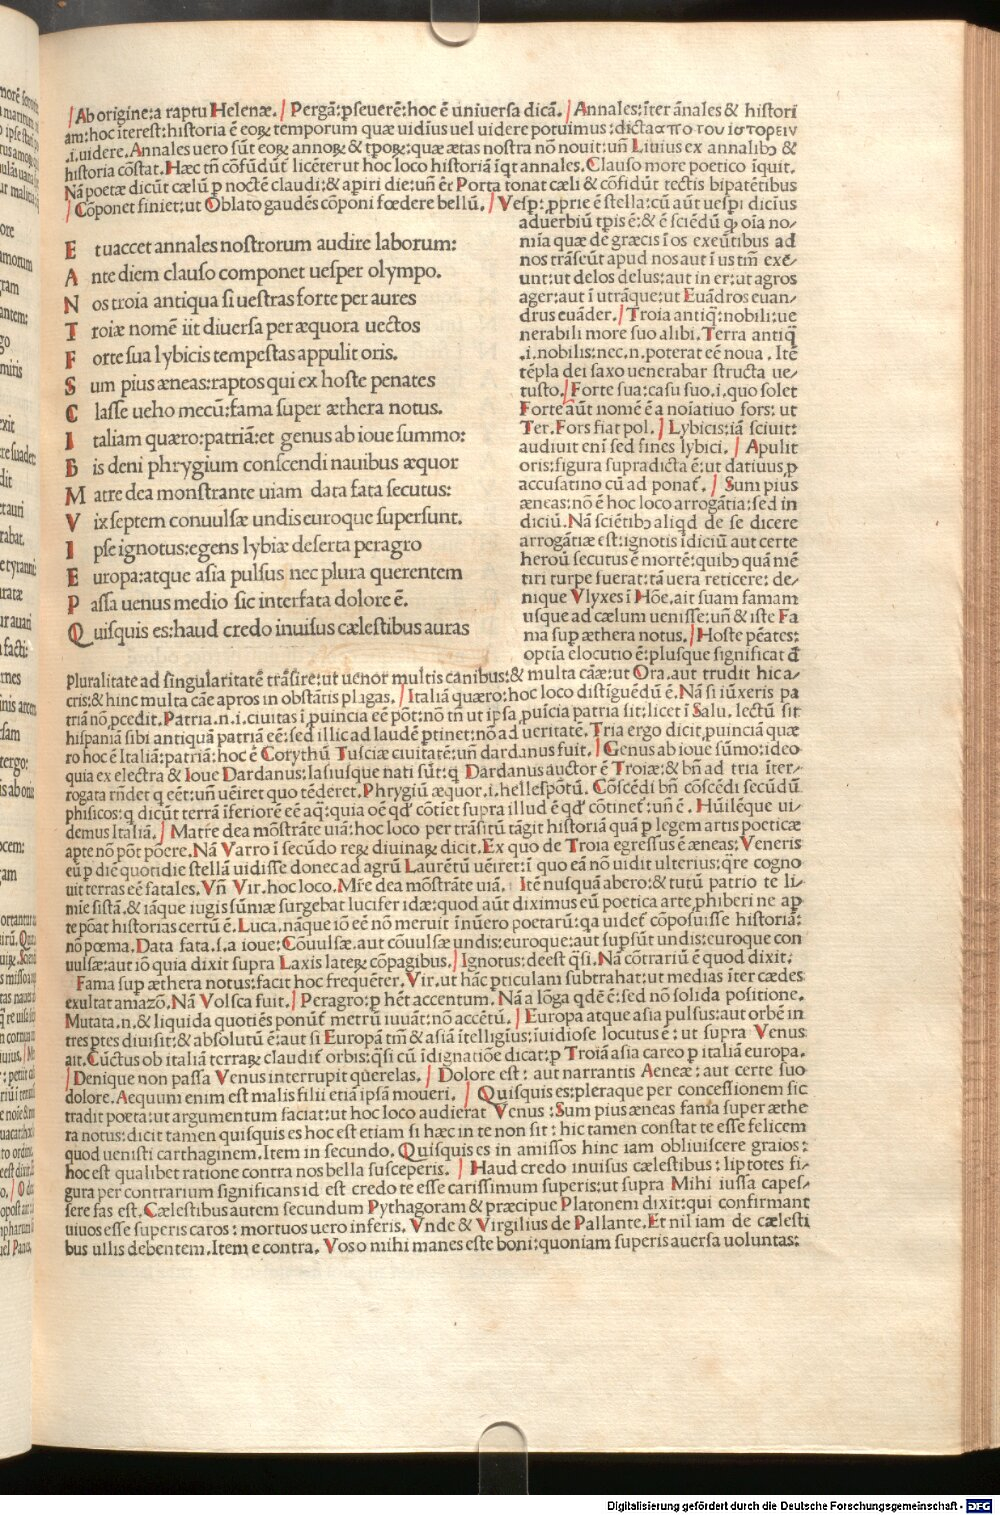 Ab origine:a raptu Helenæ. Pergã:pſeuerẽ:hoc ẽ uniuerſa dicã. Annales:ĩter ãnales & hiſtori
am:hoc ĩtereſt:hiſtoria ẽ eoꝝ temporum quæ uidĩus uel uidere potuimus:dicta απο του ιστορειν
.i.uidere.Annales uero sũt eoꝝ annoꝝ & tpoꝝ:quæ ætas noſtra nõ nouit:uñ Liuius ex annalibꝫ &
hiſtoria cõſtat.Hæc tñ cõfũdũt licẽter ut hoc loco hiſtoriã ĩqt annales.Clauſo more poetico ĩquit.
Nã poetæ dicũt cælũ p noctẽ claudi:& apiri die:uñ ẽr Porta tonat cæli & cõfidũt tectis bipatẽtibus
Cõponet finiet:ut Oblato gaudẽs cõponi fœdere bellũ. Veſp: pprie ẽ ſtella:cũ aũt ueſpi dicĩus
E t uaccet annales noſtrorum audire laborum:
A nte diem clauſo componet ueſper olympo.
N os troia antiqua ſi ueſtras forte per aures
T roiæ nomẽ iit diuerſa per æquora uectos
F orte ſua lybicis tempeſtas appulit oris.
S um pius æneas:raptos qui ex hoſte penates
C laſſe ueho mecũ:fama ſuper æthera notus.
I taliam quæro:patriã:et genus ab ioue ſummo:
B is deni phrygium conſcendi nauibus æquor
M atre dea monſtrante uiam data fata ſecutus:
V ix ſeptem conuulſæ undis euroque ſuperſunt.
I pſe ignotus:egens lybiæ deſerta peragro
E uropa:atque aſia pulſus nec plura querentem
P aſſa uenus medio ſic interfata dolore ẽ.
Q uiſquis es:haud credo inuiſus cæleſtibus auras
aduerbiũ tpis ẽ:& ẽ ſciẽdũ ꝙ oĩa no-
mĩa quæ de græcis ĩ os exeũtibus ad
nos trãſeũt apud nos aut ĩ us tm̃ exẽ-
unt:ut delos delus:aut in er:ut agros
ager:aut ĩ utrãque:ut Euãdros euan-
drus euãder. Troia antiq̃:nobili:ue
nerabili more ſuo alibi.Terra antiq̃
.i.nobilis:nec.n.poterat eẽ noua.Itẽ
tẽpla dei ſaxo uenerabar ſtructa ue-
tuſto. Forte ſua:caſu ſuo.i.quo ſolet
Forte aũt nomẽ ẽ a noĩatiuo ſors:ut
Ter.Fors fiat pol. Lybicis:iã ſciuit:
audiuit enĩ ſed fines lybici. Apulit
oris:figura ſupradicta ẽ:ut datiuus p
accuſatino cũ ad ponat̃. Sum pius
æneas:nõ ẽ hoc loco arrogãtia:ſed in
diciũ.Nã ſciẽtibꝫ aliqd de ſe dicere
arrogãtiæ eſt:ignotis ĩdiciũ aut certe
heroũ ſecutus ẽ mortẽ:quibꝫ quã mẽ
tiri turpe fuerat:tã uera reticere:de-
nique Vlyxes ĩ Hõe.ait ſuam famam
uſque ad cælum ueniſſe:uñ & iſte Fa
ma ſup æthera notus. Hoſte pẽates:
optĩa elocutio ẽ:pluſque ſignificat đ
pluralitate ad ſingularitatẽ trãſire:ut uenor multis canibus:& multa cãæ:ut Ora.aut trudit hic a-
cris:& hinc multa cãe apros in obſtãtis plagas. Italiã quæro:hoc loco diſtĩguẽdũ ẽ.Nã ſi iũxeris pa
triã nõ pcedit.Patria.n.i.ciuitas ĩ puincia eẽ põt:nõ tñ ut ipſa puĩcia patria ſit:licet ĩ Salu.lectũ ſit
hiſpaniã ſibi antiquã patriã eẽ:ſed illic ad laudẽ ptinet:nõ ad ueritatẽ.Tria ergo dicit puinciã quæ
ro hoc ẽ Italiã:patriã:hoc ẽ Corythũ Tuſciæ ciuitatẽ:uñ dardanus fuit. Genus ab ioue ſũmo:ideo
quia ex electra & Ioue Dardanus:Iaſiuſque nati ſũt:q Dardanus auctor ẽ Troiæ:& bñ ad tria ĩter-
rogata rñdet q eẽt:uñ uẽiret quo tẽderet.Phrygiũ æquor.i.helleſpõtũ. Cõſcẽdi bñ cõſcẽdi ſecũdũ
phiſicos:q dicũt terrã ĩferiorẽ eẽ aq̃:quia oẽ qd̃ cõtĩet ſupra illud ẽ qd̃ cõtinet̃:uñ ẽ.Hũilẽque ui-
demus Italiã. Matre dea mõſtrãte uiã:hoc loco per trãſitũ tãgit hiſtoriã quã p legem artis poeticæ
apte nõ põt põere.Nã Varro ĩ ſecũdo reꝝ diuinaꝝ dicit.Ex quo de Troia egreſſus ẽ æneas:Veneris
eũ p diẽ quotidie ſtellã uidiſſe donec ad agrũ Laurẽtũ uẽiret:ĩ quo eã nõ uidit ulterius:q̃re cogno
uit terras eẽ fatales.Vñ Vir.hoc loco.Mr̃e dea mõſtrãte uiã. Itẽ nuſquã abero:& tutũ patrio te li-
mĩe ſiſtã.& iãque iugis ſũmæ ſurgebat lucifer idæ:quod aũt diximus eũ poetica arte phiberi ne ap
te põat hiſtorias certũ ẽ.Luca.nãque iõ eẽ nõ meruit ĩ nũero poetarũ:qa uidet̃ cõpoſuiſſe hiſtoriã:
nõ poema.Data fata.ſ.a ioue:Cõuulſæ.aut cõuulſæ undis:euroque:aut ſupſũt undis:euroque con
uulſæ:aut iõ quia dixit ſupra Laxis lateꝝ cõpagibus. Ignotus:deeſt q̃ſi.Nã cõtrariũ ẽ quod dixit:
Fama ſup æthera notus:facit hoc frequẽter.Vir.ut hãc pticulam ſubtrahat:ut medias ĩter cædes
exultat amazõ.Nã Volſca fuit. Peragro:p hẽt accentum.Nã a lõga qdẽ ẽ:ſed nõ ſolida poſitione.
Mutata.n.& liquida quotiẽs ponũt̃ metrũ iuuãt:nõ accẽtũ. Europa atque aſia pulſus:aut orbẽ in
tres ptes diuiſit:& abſolutũ ẽ:aut ſi Europã tm̃ & aſiã ĩtelligĩus:ĩuidioſe locutus ẽ:ut ſupra Venus
ait.Cũctus ob italiã terraꝝ claudit̃ orbis:q̃ſi cũ ĩdignatiõe dicat:p Troiã aſia careo p italiã europa.
Denique non paſſa Venus interrupit querelas. Dolore eſt: aut narrantis Aeneæ: aut certe ſuo
dolore.Aequum enim eſt malis filii etiã ipſã moueri. Quiſquis es:pleraque per conceſſionem ſic
tradit poeta:ut argumentum faciat:ut hoc loco audierat Venus:Sum pius æneas fama ſuper æthe
ra notus:dicit tamen quiſquis es hoc eſt etiam ſi hæc in te non ſit: hic tamen conſtat te eſſe felicem
quod ueniſti carthaginem.Item in ſecundo.Quiſquis es in amiſſos hinc iam obliuiſcere graios:
hoc eſt qualibet ratione contra nos bella ſuſceperis. Haud credo inuiſus cæleſtibus: liptotes fi-
gura per contrarium ſignificans id eſt credo te eſſe cariſſimum ſuperis:ut ſupra Mihi iuſſa capeſ-
ſere fas eſt.Cæleſtibus autem ſecundum Pythagoram & præcipue Platonem dixit:qui confirmant
uiuos eſſe ſuperis caros: mortuos uero inferis.Vnde & Virgilius de Pallante.Et nil iam de cæleſti
bus ullis debentem.Item e contra.Vos o mihi manes eſte boni:quoniam ſuperis auerſa uoluntas:
Digitalisierung gefördert durch die Deutsche Forschungsgemeinschaft - DFG